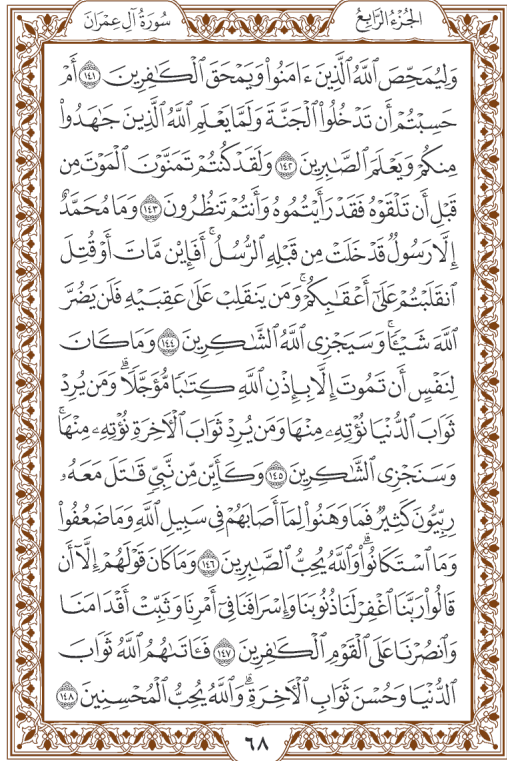 الجزء الرابع
سورة آل عمران
وَلِيُمَحِّصَ ٱللَّهُ ٱلَّذِينَ ءَامَنُوا۟ وَيَمْحَقَ ٱلْكَٰفِرِينَ ١٤١ أَمْ
حَسِبْتُمْ أَن تَدْخُلُوا۟ ٱلْجَنَّةَ وَلَمَّا يَعْلَمِ ٱللَّهُ ٱلَّذِينَ جَٰهَدُوا۟
مِنكُمْ وَيَعْلَمَ ٱلصَّٰبِرِينَ ١٤٢ وَلَقَدْ كُنتُمْ تَمَنَّوْنَ ٱلْمَوْتَ مِن
قَبْلِ أَن تَلْقَوْهُ فَقَدْ رَأَيْتُمُوهُ وَأَنتُمْ تَنظُرُونَ ١٤٣ وَمَا مُحَمَّدٌ
إِلَّا رَسُولٌ قَدْ خَلَتْ مِن قَبْلِهِ ٱلرُّسُلُ ۚ أَفَإِي۟ن مَّاتَ أَوْ قُتِلَ
ٱنقَلَبْتُمْ عَلَىٰٓ أَعْقَٰبِكُمْ ۚ وَمَن يَنقَلِبْ عَلَىٰ عَقِبَيْهِ فَلَن يَضُرَّ
ٱللَّهَ شَيْـًٔا ۗ وَسَيَجْزِى ٱللَّهُ ٱلشَّٰكِرِينَ ١٤٤ وَمَا كَانَ
لِنَفْسٍ أَن تَمُوتَ إِلَّا بِإِذْنِ ٱللَّهِ كِتَٰبًا مُّؤَجَّلًا ۗ وَمَن يُرِدْ
ثَوَابَ ٱلدُّنْيَا نُؤْتِهِۦ مِنْهَا وَمَن يُرِدْ ثَوَابَ ٱلْءَاخِرَةِ نُؤْتِهِۦ مِنْهَا ۚ
وَسَنَجْزِى ٱلشَّٰكِرِينَ ١٤٥ وَكَأَيِّن مِّن نَّبِىٍّ قَٰتَلَ مَعَهُۥ
رِبِّيُّونَ كَثِيرٌ فَمَا وَهَنُوا۟ لِمَآ أَصَابَهُمْ فِى سَبِيلِ ٱللَّهِ وَمَا ضَعُفُوا۟
وَمَا ٱسْتَكَانُوا۟ ۗ وَٱللَّهُ يُحِبُّ ٱلصَّٰبِرِينَ ١٤٦ وَمَا كَانَ قَوْلَهُمْ إِلَّآ أَن
قَالُوا۟ رَبَّنَا ٱغْفِرْ لَنَا ذُنُوبَنَا وَإِسْرَافَنَا فِىٓ أَمْرِنَا وَثَبِّتْ أَقْدَامَنَا
وَٱنصُرْنَا عَلَى ٱلْقَوْمِ ٱلْكَٰفِرِينَ ١٤٧ فَـَٔاتَىٰهُمُ ٱللَّهُ ثَوَابَ
ٱلدُّنْيَا وَحُسْنَ ثَوَابِ ٱلْءَاخِرَةِ ۗ وَٱللَّهُ يُحِبُّ ٱلْمُحْسِنِينَ ١٤٨
٦٨